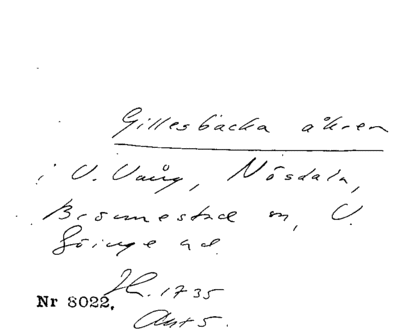 Gillesbäcka åkren
i V. Vång, Nösdala,
Brönnestad m, V.
Göinge hd.
H. 1735
Nr 8022.
Akt 5.